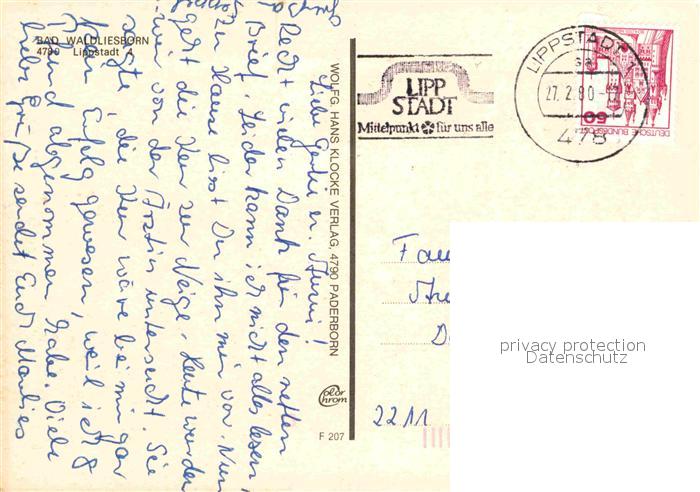 BAD WALDLIESBORN
4780 Lippstadt 4
Liebe Gerti u.
Recht vielen Dank für den netten
Brief. Leider kann ich nicht alles lesen,
zu Hause liest Du ihn mir vor. Nun
geht die Kur zur Neige. Heute wurden
wir von der Ärztin untersucht. Sie
sagte die Kur wäre bei mir gar
kein Erfolg gewesen, weil ich 8
Pfund abgenommen habe. Viele
liebe Grüße sendet Euch Marlies
WOLFG. HANS KLOCKE VERLAG, 4790 PADERBORN
Color
chrom
F 207
LIPP
STADT
Mittelpunkt für uns alle
LIPPSTADT 1
sa
27.2.80-17
478
60
DEUTSCHE BUNDESPOST
Fam
2211
privacy protection
Datenschutz